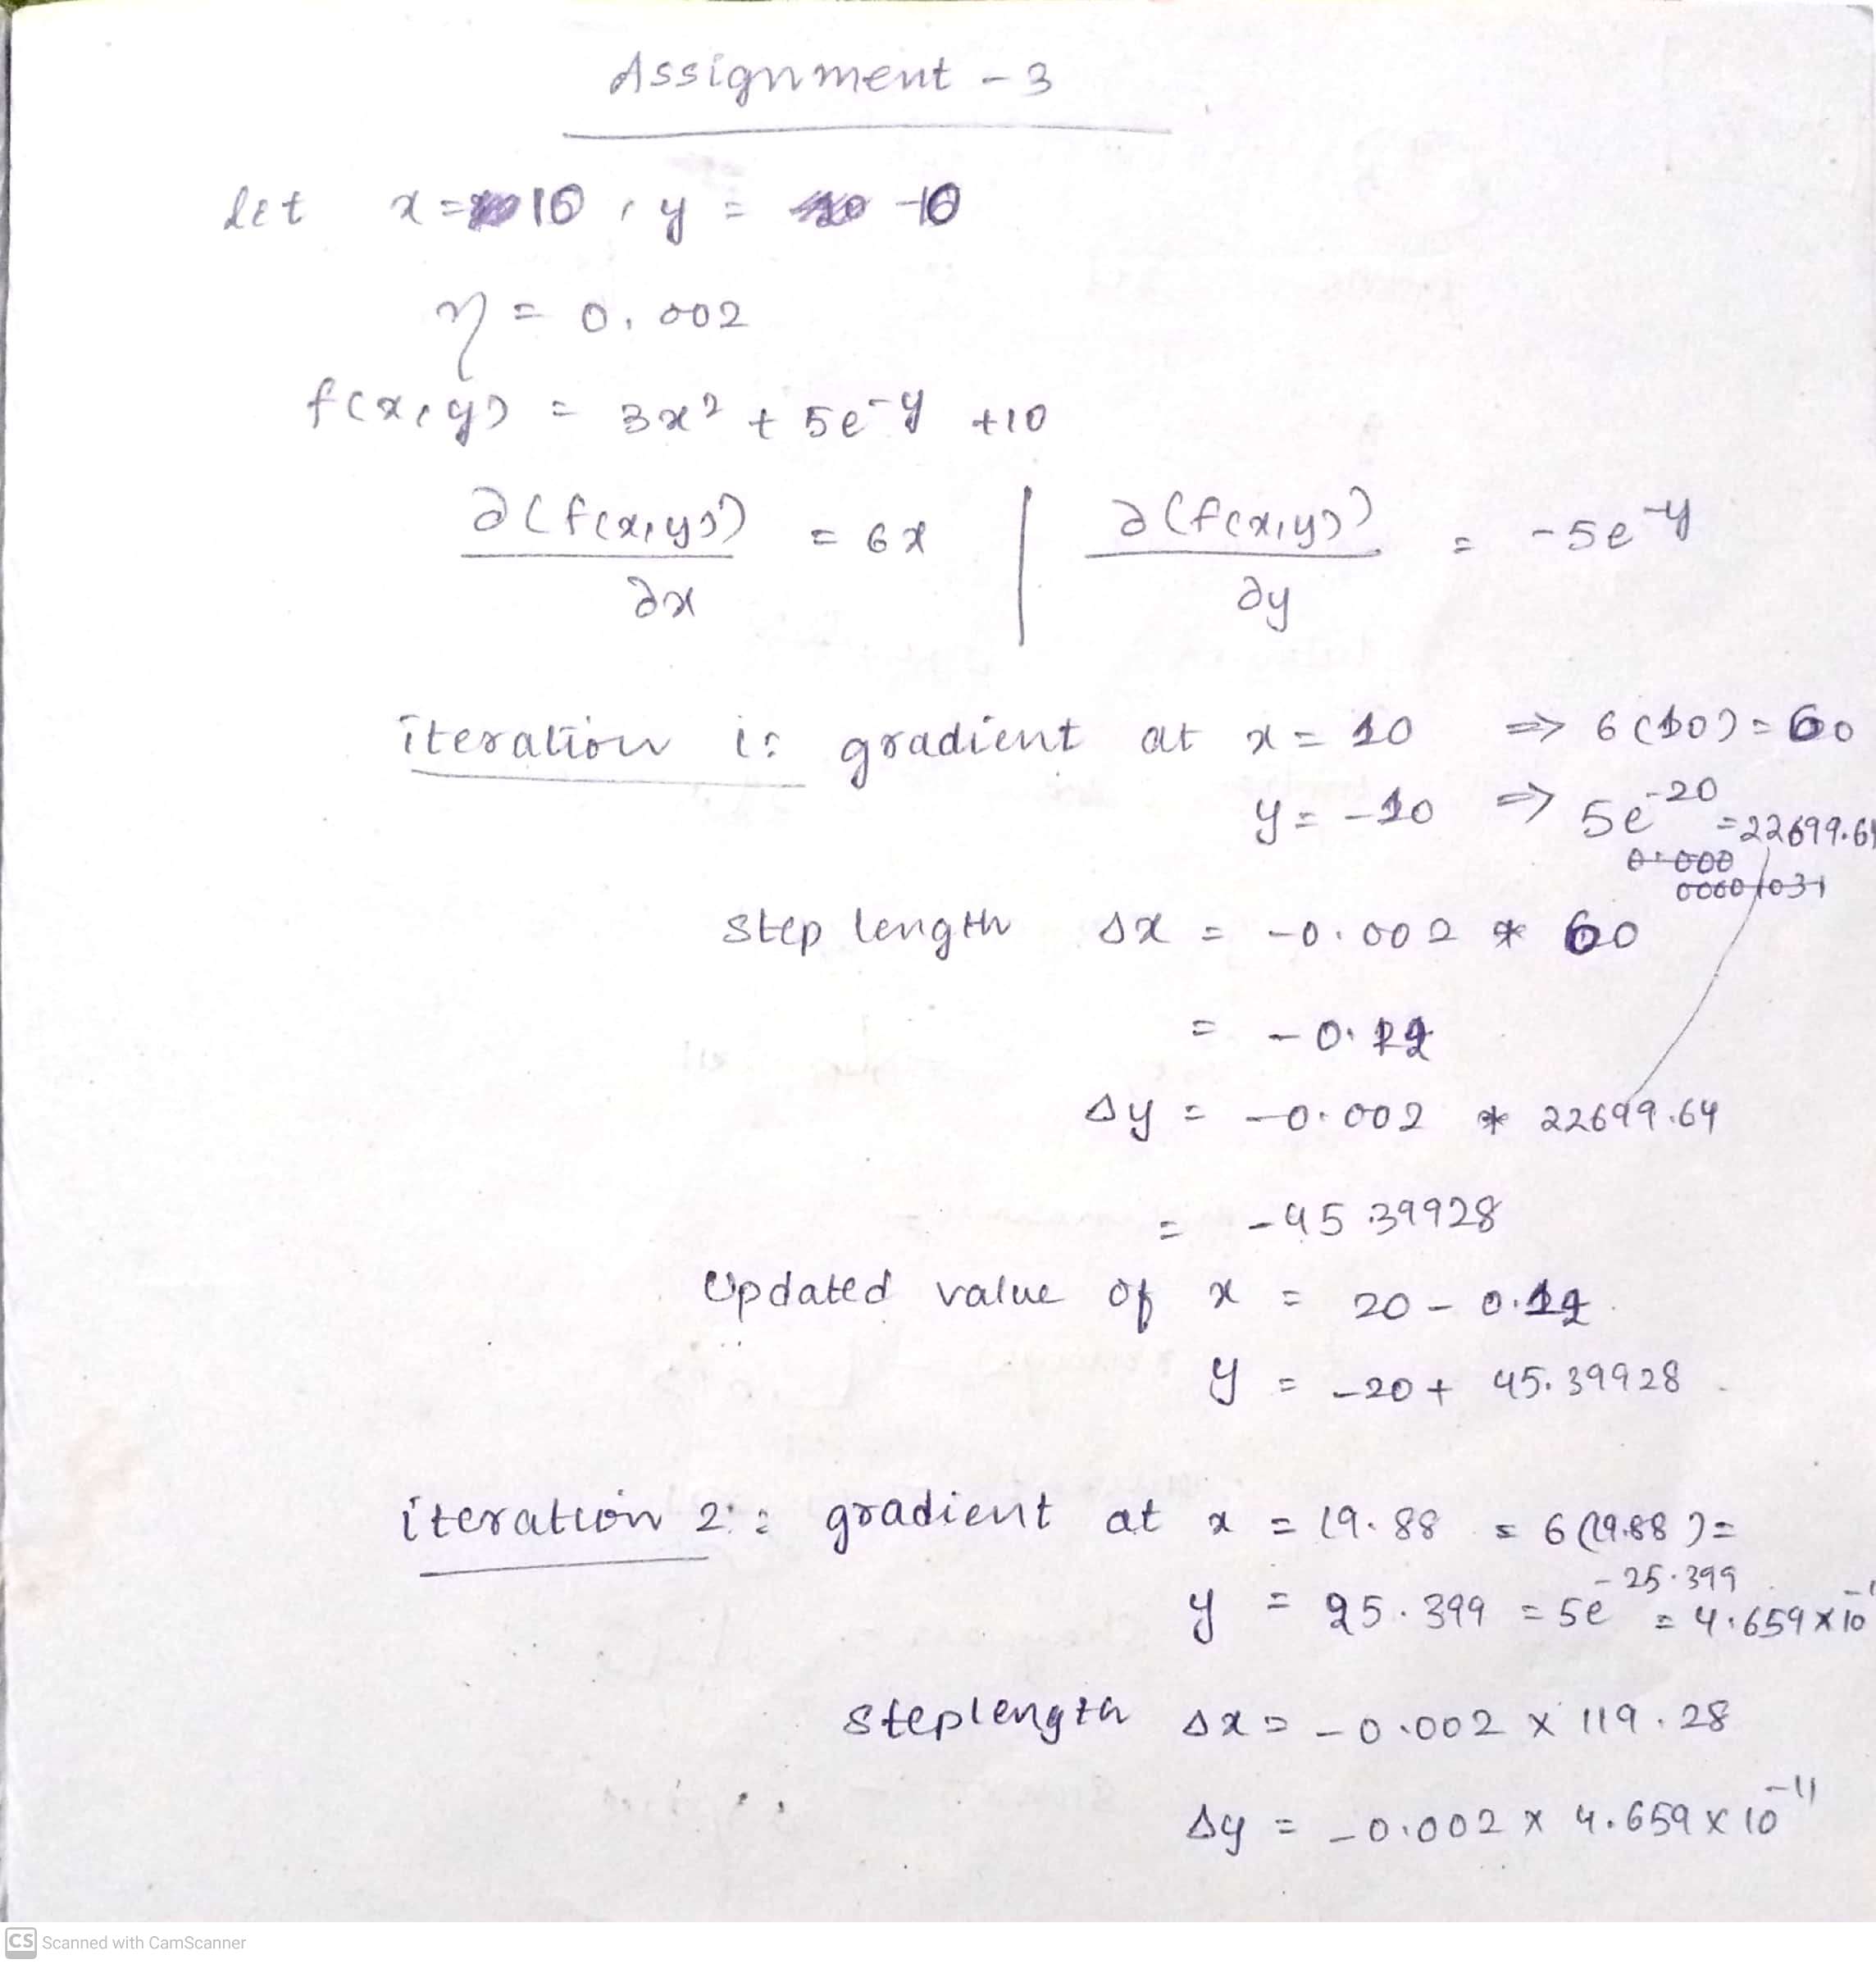 Assignment - 3
let x = 10, y = -10
η = 0.002
f(x,y) = 3x² + 5e^-y +10
∂(f(x,y))/∂x = 6x | ∂(f(x,y))/∂y = -5e^-y
iteration 1: gradient at x = 10 ⇒ 6(10) = 60
y = -10 ⇒ 5e^-20 = 22699.64
0.000
00001031
step length Δx = -0.002 * 60
= -0.12
Δy = -0.002 * 22699.64
= -45.39928
Updated value of x = 20 - 0.12
y = -20 + 45.39928
iteration 2: gradient at x = 19.88 = 6(19.88) =
y = 25.399 = 5e^-25.399 = 4.659 x 10
steplength Δx = -0.002 x 119.28
Δy = -0.002 x 4.659 x 10^-11
CS Scanned with CamScanner